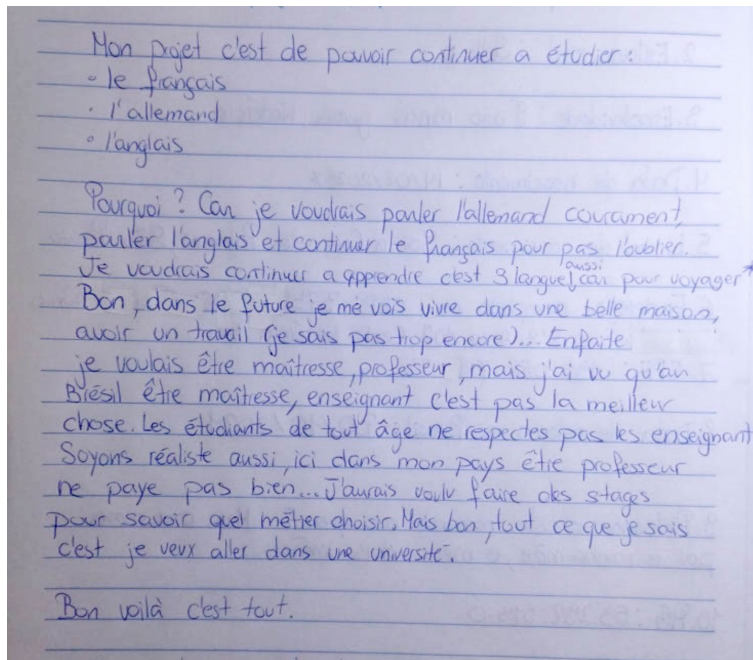 Mon projet c'est de pouvoir continuer a étudier :
◦ le français
· l'allemand
◦ l'anglais
Pourquoi ? Car je voudrais parler l'allemand courament,
parler l'anglais et continuer le français pour pas l'oublier.
Je voudrais continuer a apprendre c'est 3 langue aussi car pour voyager*
Bon, dans le future je me vois vivre dans une belle maison,
avoir un travail (je sais pas trop encore)... Enfaite
je voulais être maîtresse, professeur, mais j'ai vu qu'au
Brésil être maîtresse, enseignant c'est pas la meilleur
chose. Les étudiants de tout âge ne respectes pas les enseignant
Soyons réaliste aussi, ici dans mon pays être professeur
ne paye pas bien... J'aurais voulu faire des stages
pour savoir quel métier choisir. Mais bon, tout ce que je sais
c'est je veux aller dans une université.
Bon voilà c'est tout.